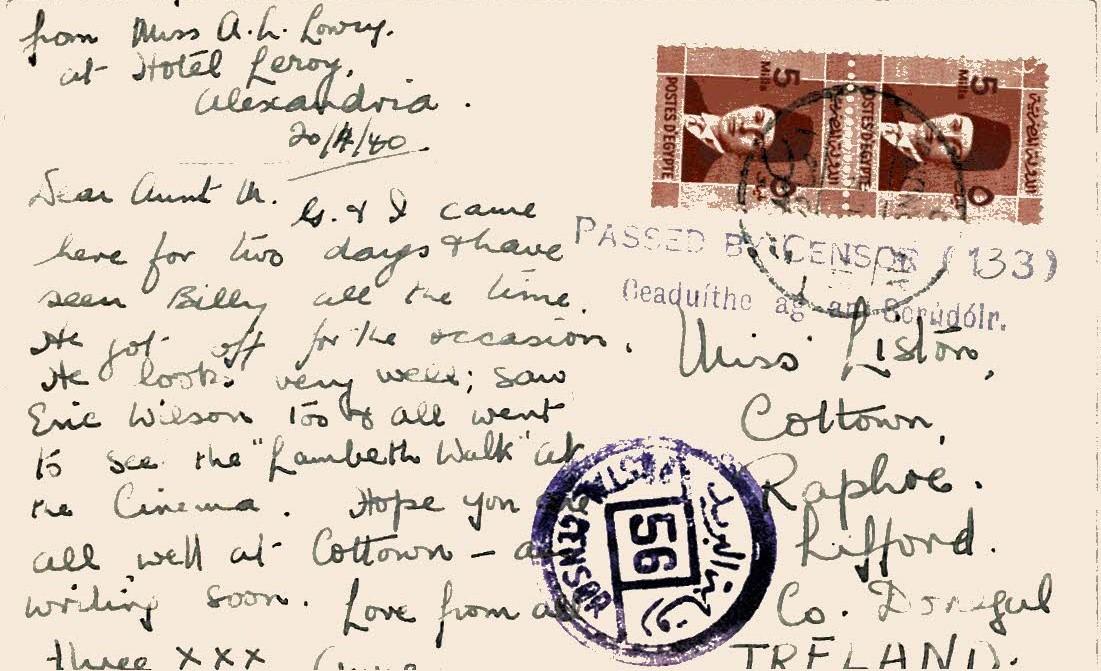 from Miss A. L. Lowry.
at Hotel Leroy,
Alexandria.
20/4/40.
Dear Aunt M.
G. & I came
here for two days & have
seen Billy all the time.
He got off for the occasion.
He looks very well; saw
Eric Wilson too & all went
to see the "Lambeth Walk" at
the Cinema. Hope you are
all well at Cottown – am
writing soon. Love from all
three xxx
5
Mills
POSTES D'EGYPTE
5
Mills
POSTES D'EGYPTE
PASSED BY CENSOR (133)
Ceaduithe ag an Scrúdóir.
Miss Liston,
Cottown,
Raphoe.
Lifford.
Co. Donegal
IRELAND.
POSTAL
56
CENSOR